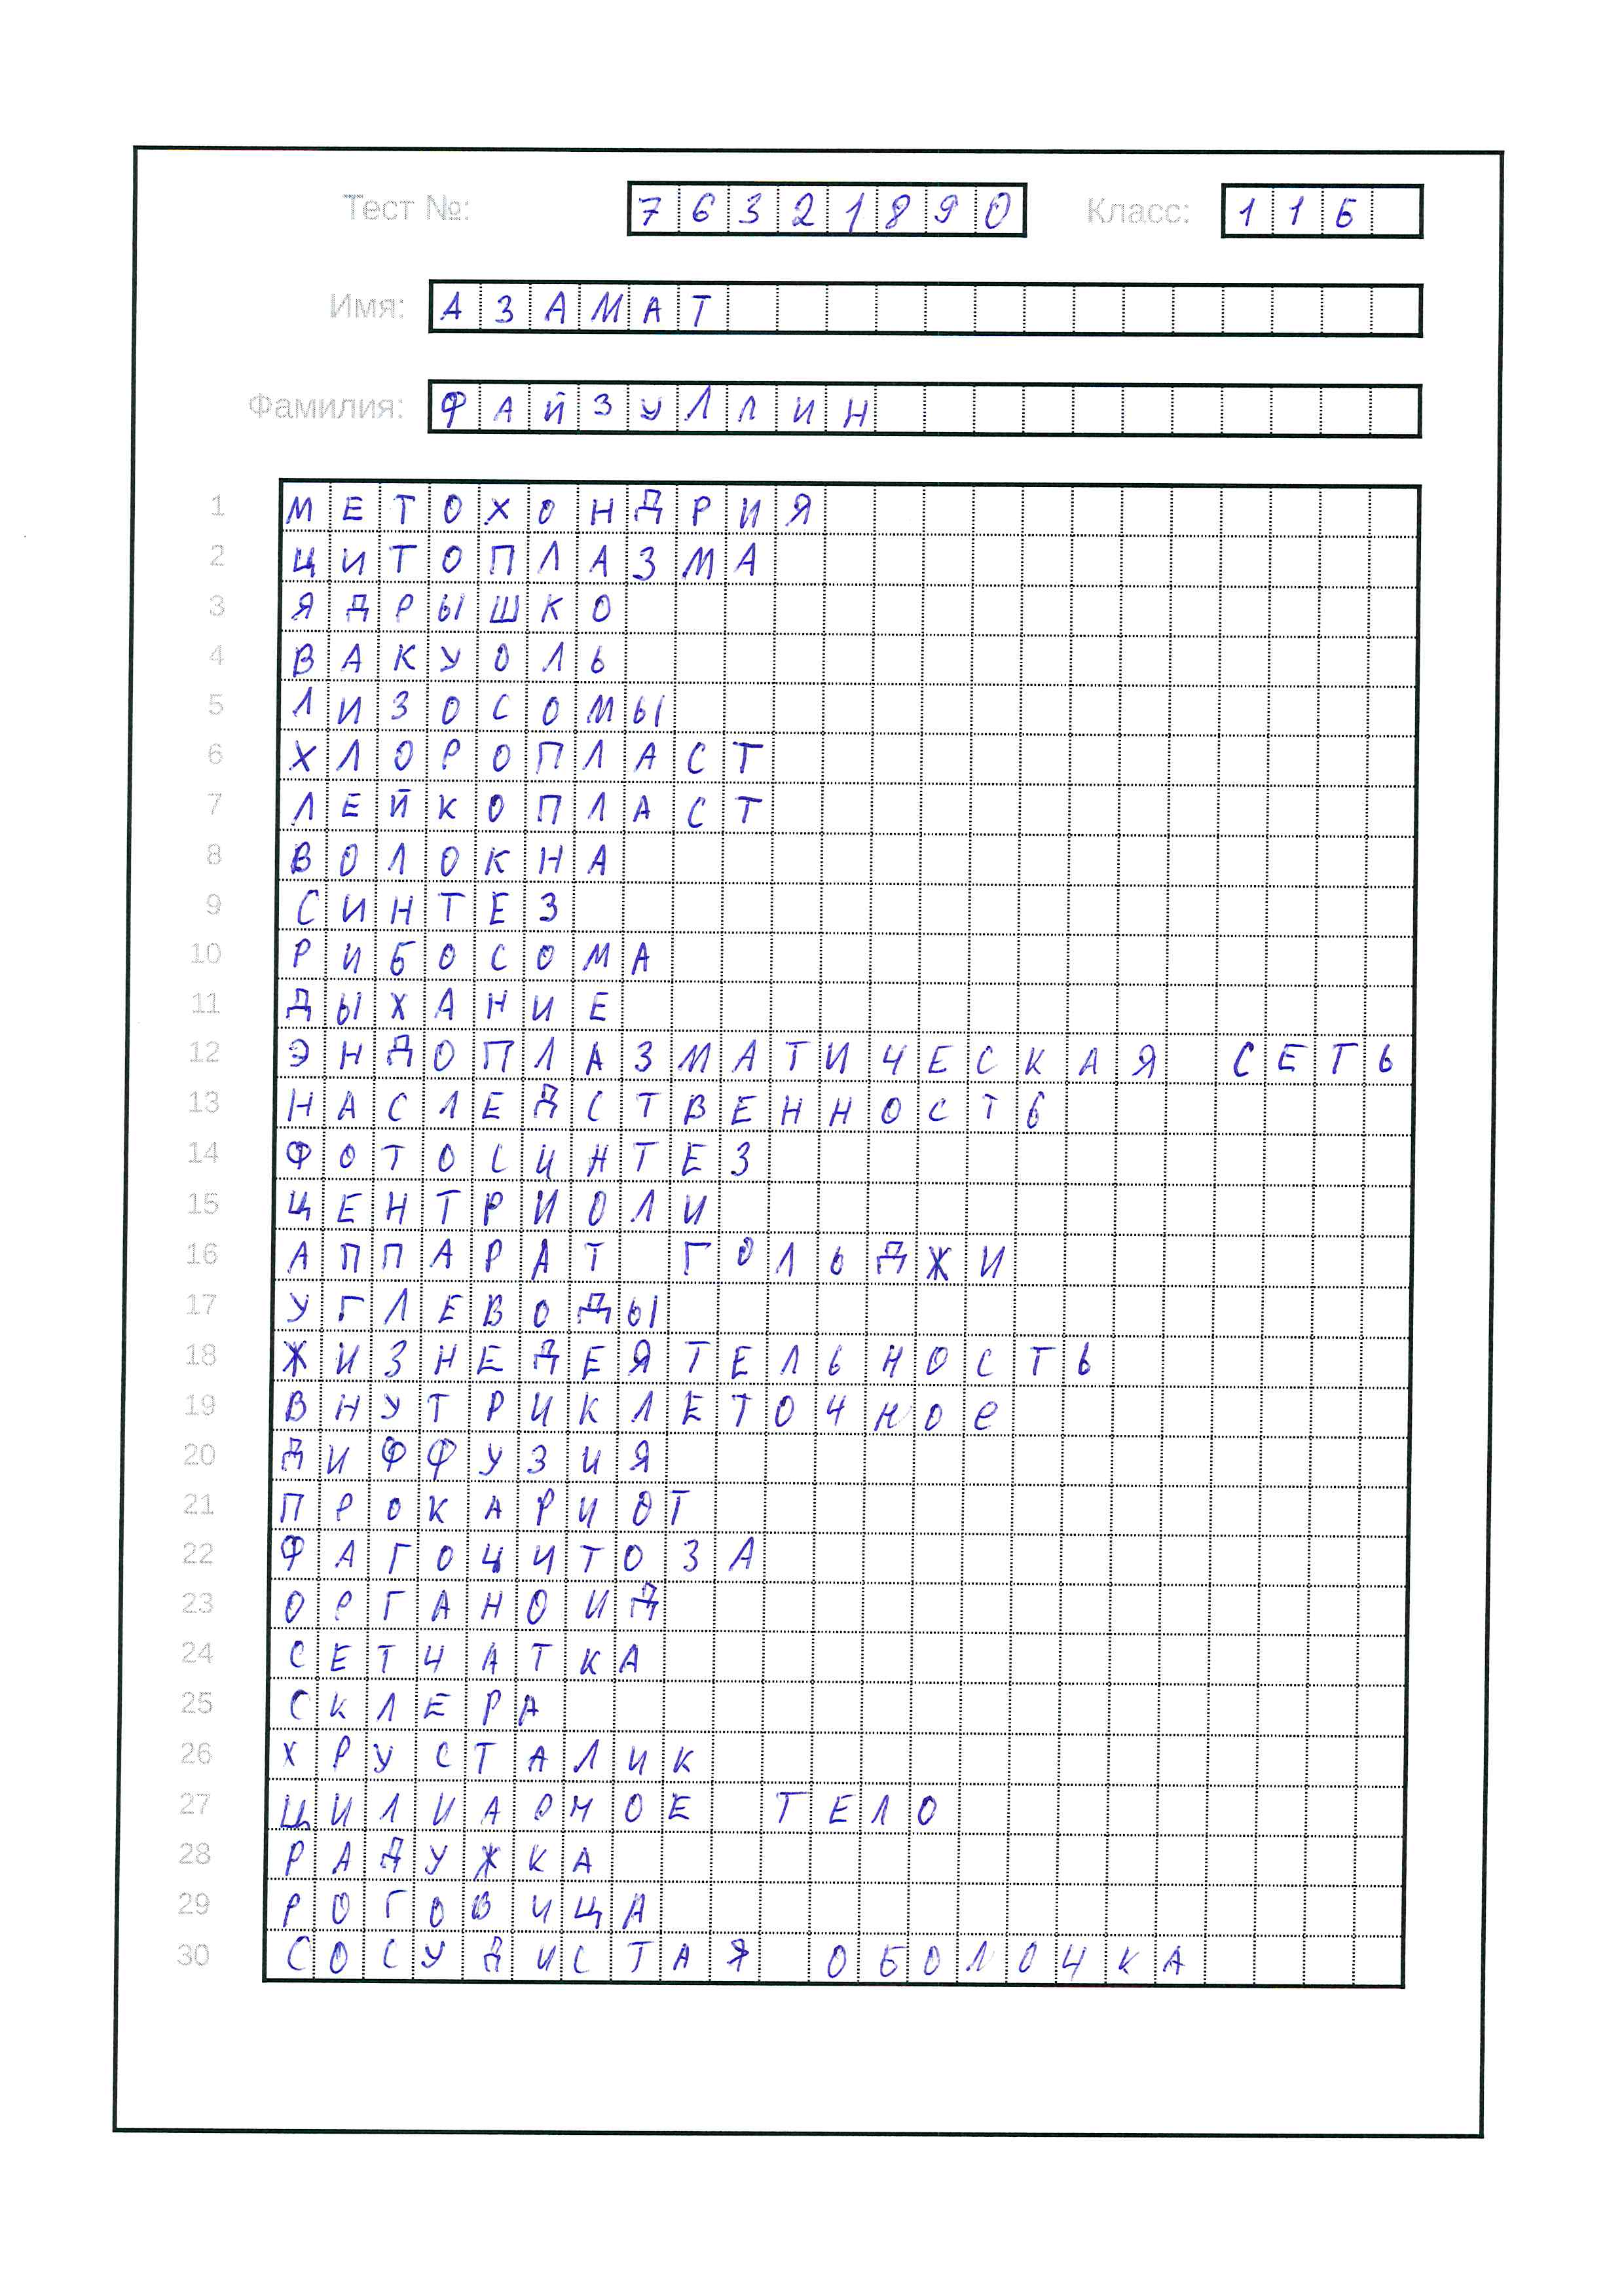 Тест №: 76321890 Класс: 11Б
Имя: АЗАМАТ
Фамилия: ФАЙЗУЛЛИН
1 МЕТОХОНДРИЯ
2 ЦИТОПЛАЗМА
3 ЯДРЫШКО
4 ВАКУОЛЬ
5 ЛИЗОСОМЫ
6 ХЛОРОПЛАСТ
7 ЛЕЙКОПЛАСТ
8 ВОЛОКНА
9 СИНТЕЗ
10 РИБОСОМА
11 ДЫХАНИЕ
12 ЭНДОПЛАЗМАТИЧЕСКАЯ СЕТЬ
13 НАСЛЕДСТВЕННОСТЬ
14 ФОТОСИНТЕЗ
15 ЦЕНТРИОЛИ
16 АППАРАТ ГОЛЬДЖИ
17 УГЛЕВОДЫ
18 ЖИЗНЕДЕЯТЕЛЬНОСТЬ
19 ВНУТРИКЛЕТОЧНОе
20 ДИФФУЗИЯ
21 ПРОКАРИОТ
22 ФАГОЦИТОЗА
23 ОРГАНОИД
24 СЕТЧАТКА
25 СКЛЕРА
26 ХРУСТАЛИК
27 ЦИЛИАРНОЕ ТЕЛО
28 РАДУЖКА
29 РОГОВИЦА
30 СОСУДИСТАЯ ОБОЛОЧКА